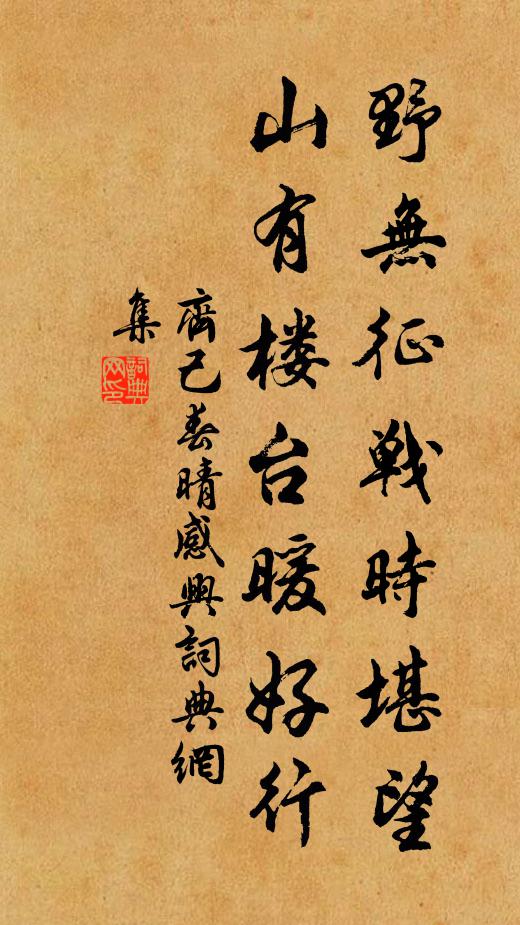 野無征戦時堪望
山有楼台暖好行
齊己春晴感興詞典網
集
詞典
网印